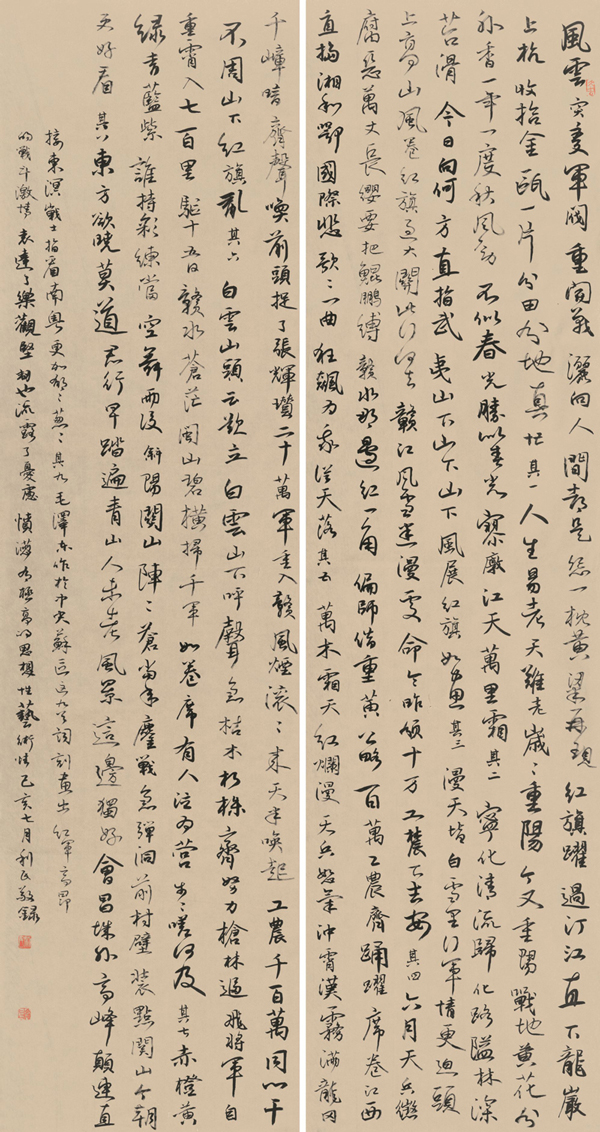 風雲突變軍閥重開戰灑向人間都是怨一枕黃粱再現紅旗躍過汀江直下龍巖
上杭收拾金甌一片分田分地真忙其一人生易老天難老歲々重陽今又重陽戰地黃花分
外香一年一度秋風勁不似春光勝似春光寥廓江天萬里霜其二寧化清流歸化路隘林深
苔滑今日向何方直指武夷山下山下山下風展紅旗如畫其三漫天皆白雪里行軍情更迫頭
上高山風卷紅旗過大關此行何去贛江風雪迷漫處命令昨頒十万工農下吉安其四六月天兵徵
腐惡萬丈長纓要把鯤鵬縛贛水那邊紅一角偏師借重黃公略百萬工農齊踴躍席卷江西
直搗湘和鄂國際悲歌歌一曲狂飆為我從天落其五萬木霜天紅爛漫天兵怒氣沖霄漢霧滿龍岡
千嶂暗齊聲喚前頭捉了張輝瓚二十萬軍重入贛風煙滾々來天半喚起工農千百萬同心干
不周山下紅旗亂其六白雲山頭云欲立白雲山下呼聲急枯木朽株齊努力槍林逼飛將軍自
重霄入七百里驅十五日贛水蒼茫閩山碧橫掃千軍如卷席有人泣為營步々嗟何及其七赤橙黃
綠青藍紫誰持彩練當空舞雨後斜陽關山陣々蒼當年鏖戰急彈洞前村壁裝點關山今朝
更好看其八東方欲曉莫道君行早踏遍青山人未老風景這邊獨好會昌城外高峰顛連直
接東溟戰士指看南粵更加郁々蔥々其九毛澤東作於中央蘇區這九首詞刻畫出紅軍高昂
的戰斗激情表達了樂觀堅韌也流露了憂慮憤滿極高的思想性藝術性己亥七月利民敬錄